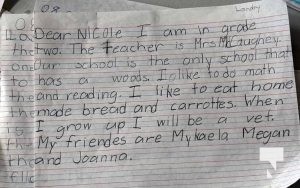 Landry
Dear Nicole I am in grade
two. The teacher is Mrs McLughey.
Our school is the only school that
has a woods. I like to do math
and reading. I like to eat home
made bread and carrottes. When
I grow up I will be a vet.
My friendes are Mykaela Megan
and Joanna.